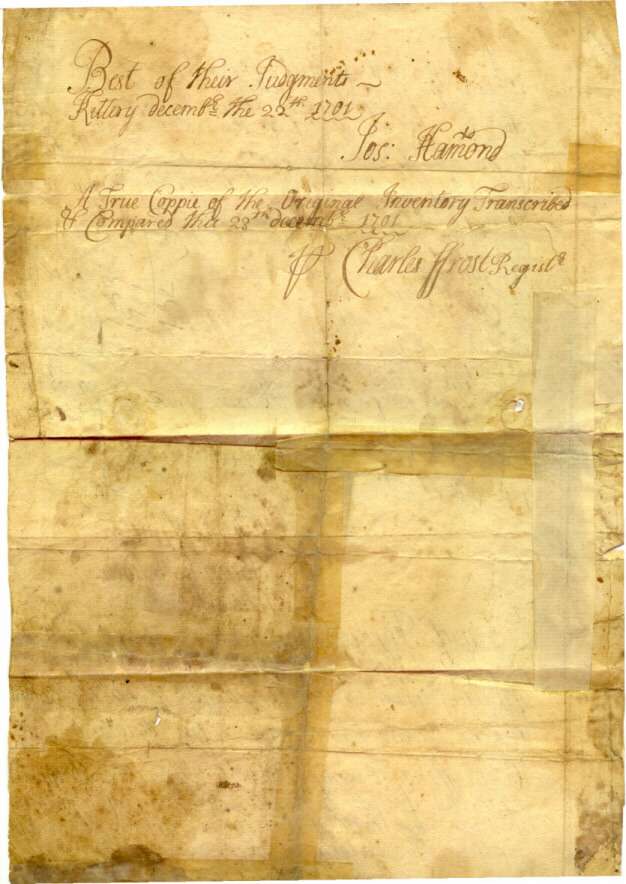 Best of their Judgments
Kittery decembr the 22th 1701
Jos: Hamond
A True Coppie of the Original Inventory Transcribed
& Compared this 28th decembr 1701
Charles ffrost Registr